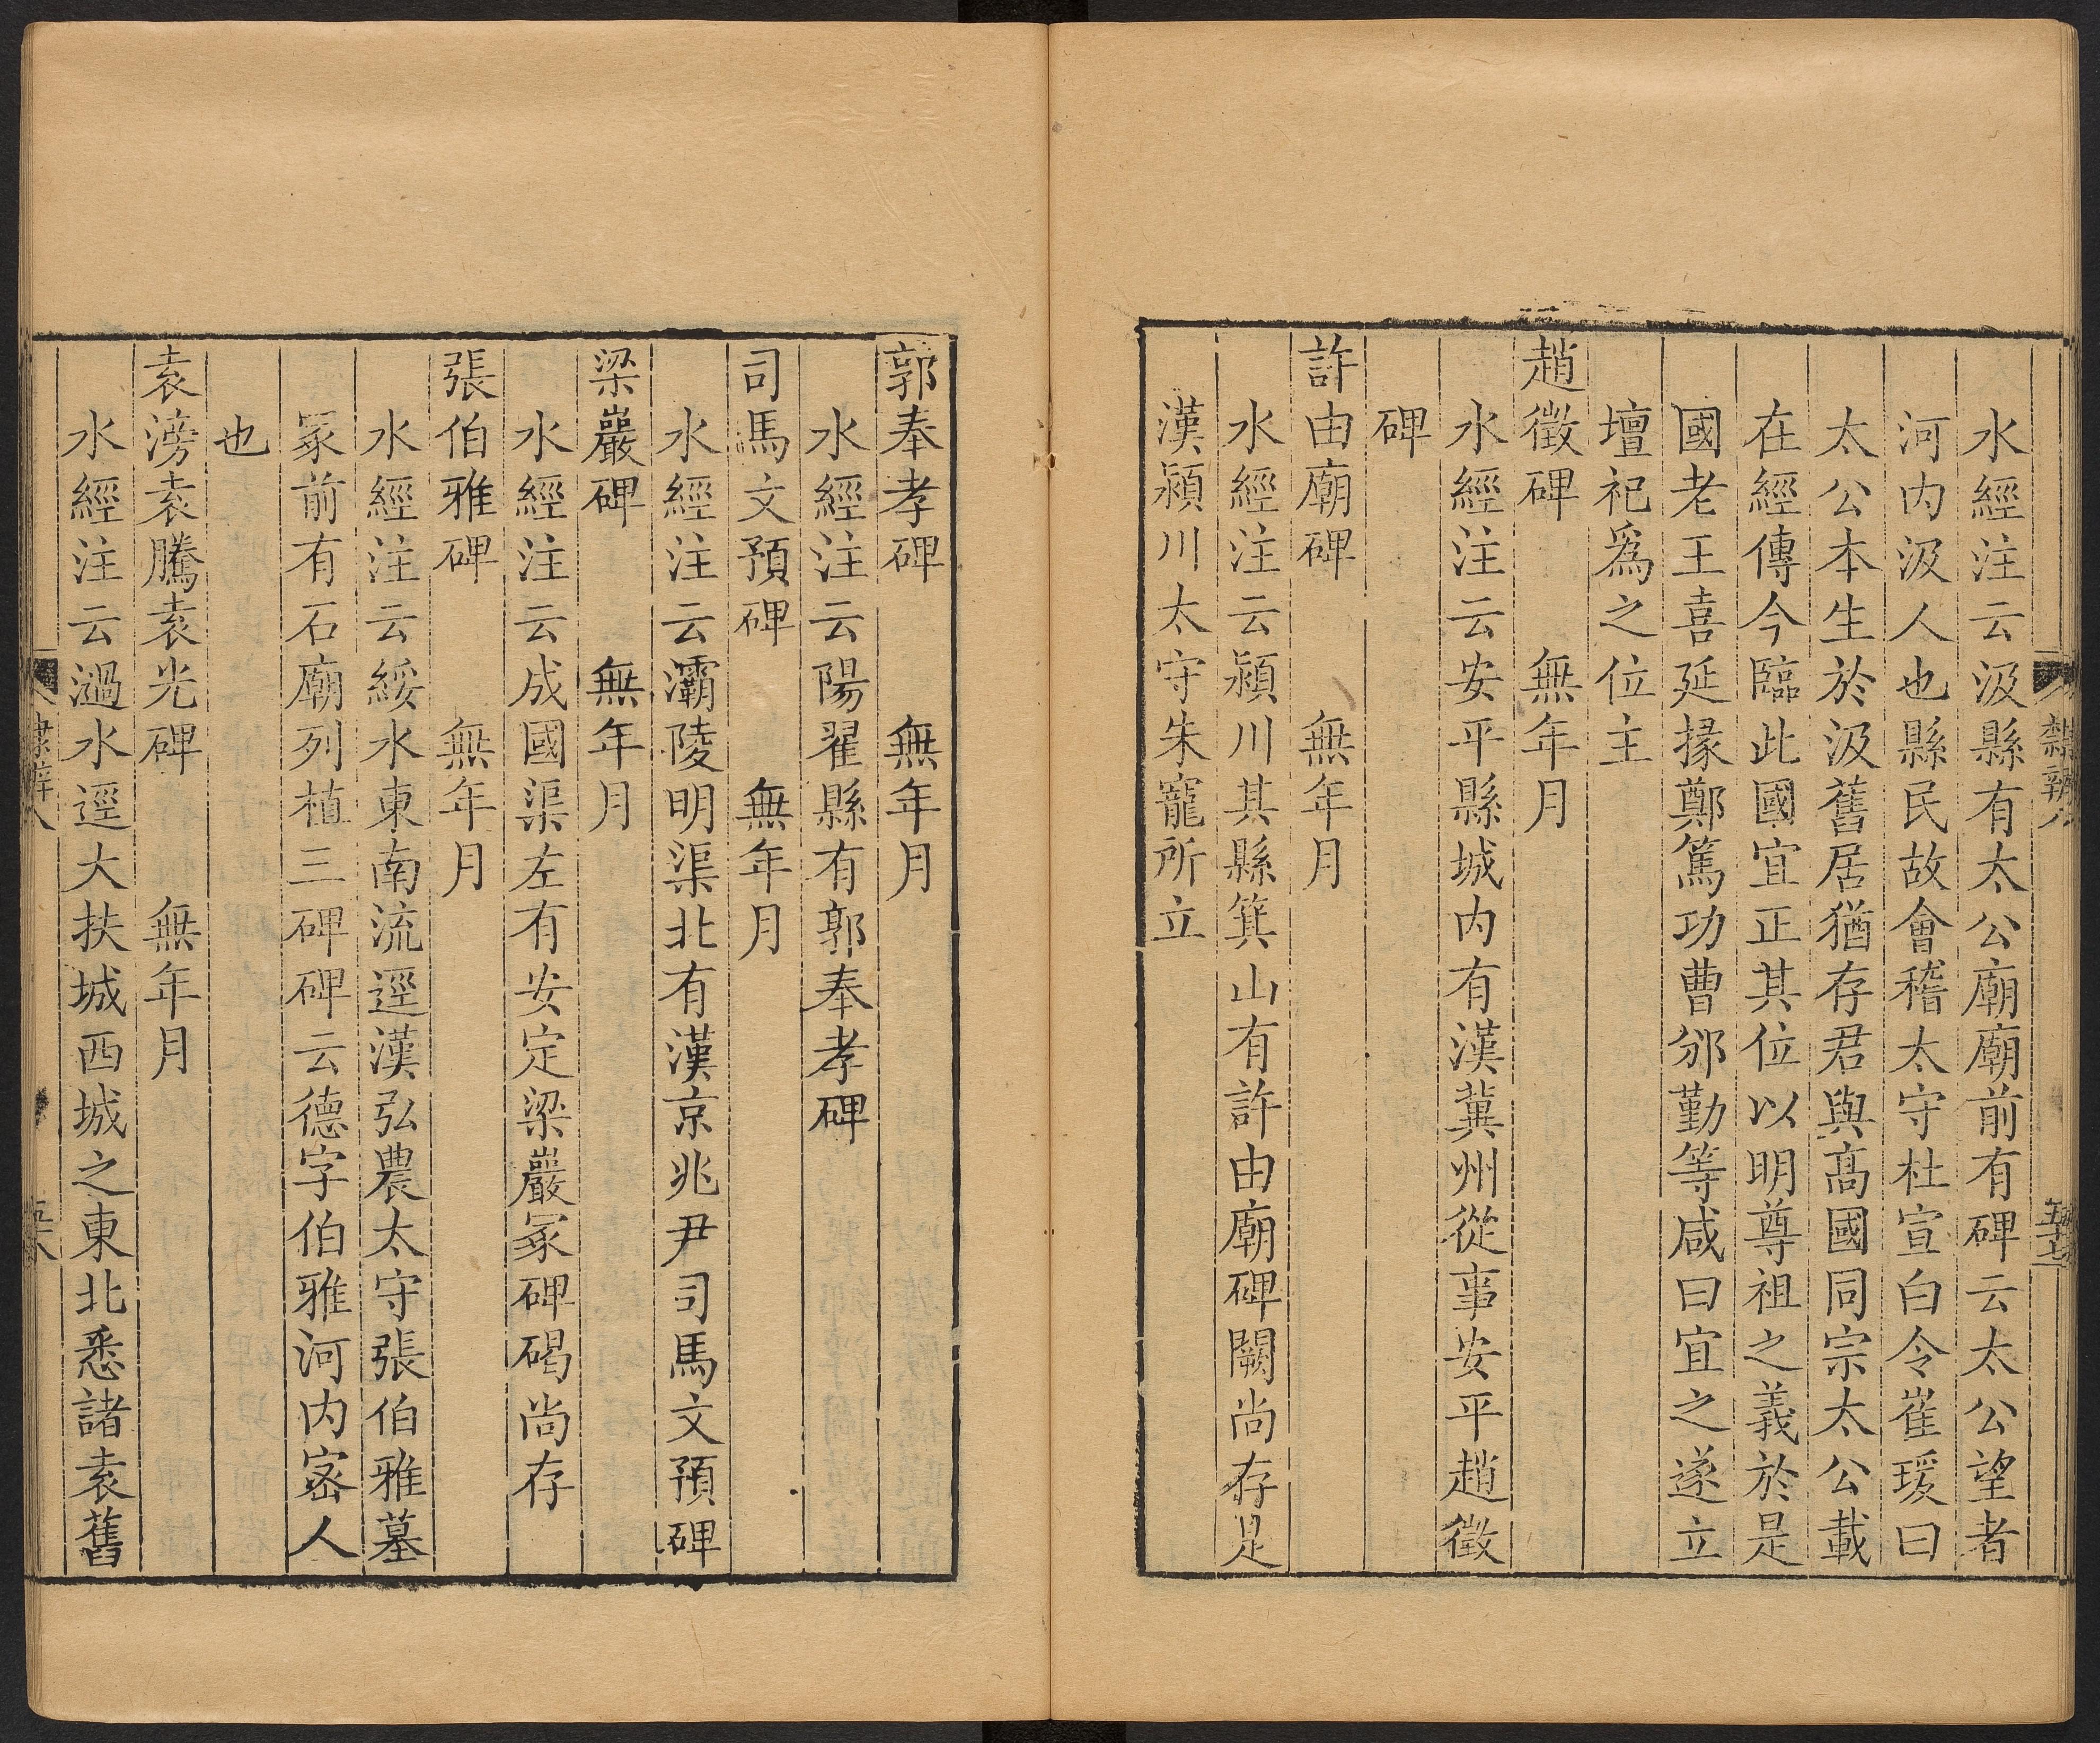 水經注云汲縣有太公廟廟前有碑云太公望者
河內汲人也縣民故會稽太守杜宣白令崔瑗曰
太公本生於汲舊居猶存君與高國同宗太公載
在經傳今臨此國宜正其位以明尊祖之義於是
國老王喜延掾鄭篤功曹邠勤等咸曰宜之遂立
壇祀爲之位主
趙徵碑 無年月
水經注云安平縣城內有漢冀州從事安平趙徵
碑
許由廟碑 無年月
水經注云潁川其縣箕山有許由廟碑闕尚存是
漢潁川太守朱寵所立
郭奉孝碑 無年月
水經注云陽翟縣有郭奉孝碑
司馬文預碑 無年月
水經注云灞陵明渠北有漢京兆尹司馬文預碑
梁巖碑 無年月
水經注云成國渠左有安定梁巖冢碑碣尚存
張伯雅碑 無年月
水經注云綏水東南流逕漢弘農太守張伯雅墓
冢前有石廟列植三碑碑云德字伯雅河內密人
也
袁滂袁騰袁光碑 無年月
水經注云濄水逕大扶城西城之東北悉諸袁舊